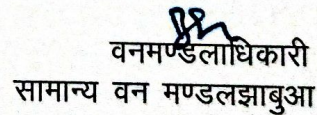 वनमण्डलाधिकारी
सामान्य वन मण्डलझाबुआ